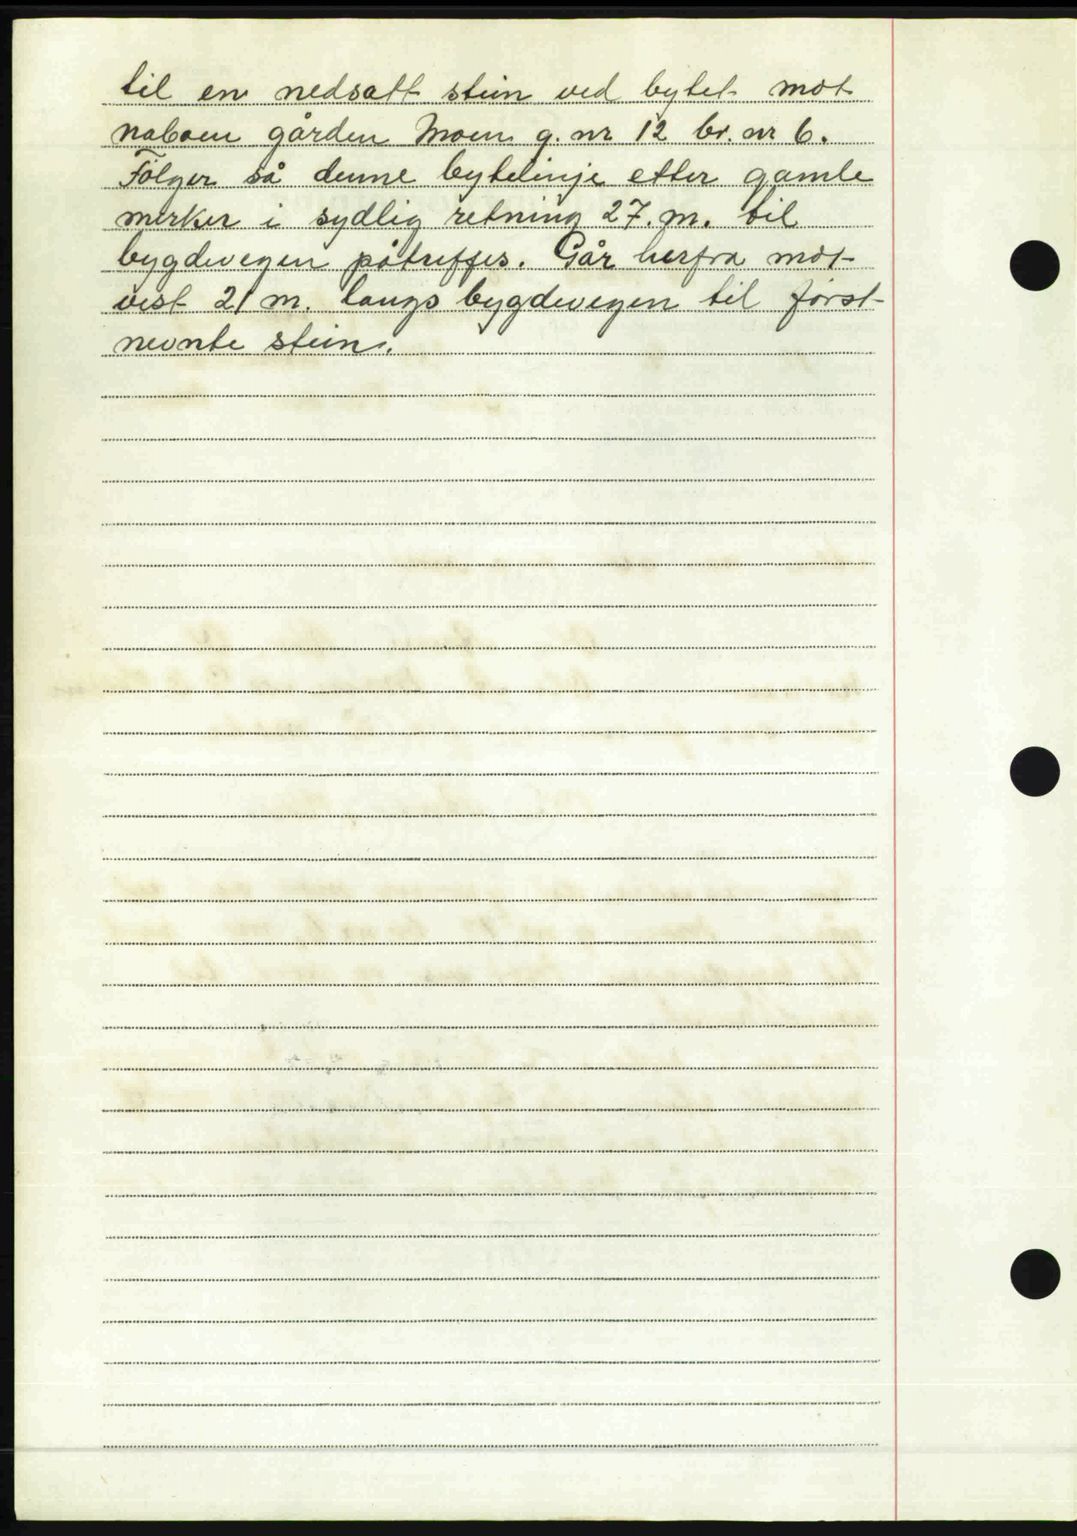 til en nedsatt stein ved bytet mot
naboen gården Moen g. nr 12 br. nr 6.
Følger så denne bytelinje etter gamle
merker i sydlig retning 27. m. til
bygdevegen påtreffes. Går herfra mot
vest 21 m. langs bygdevegen til først
nevnte stein.